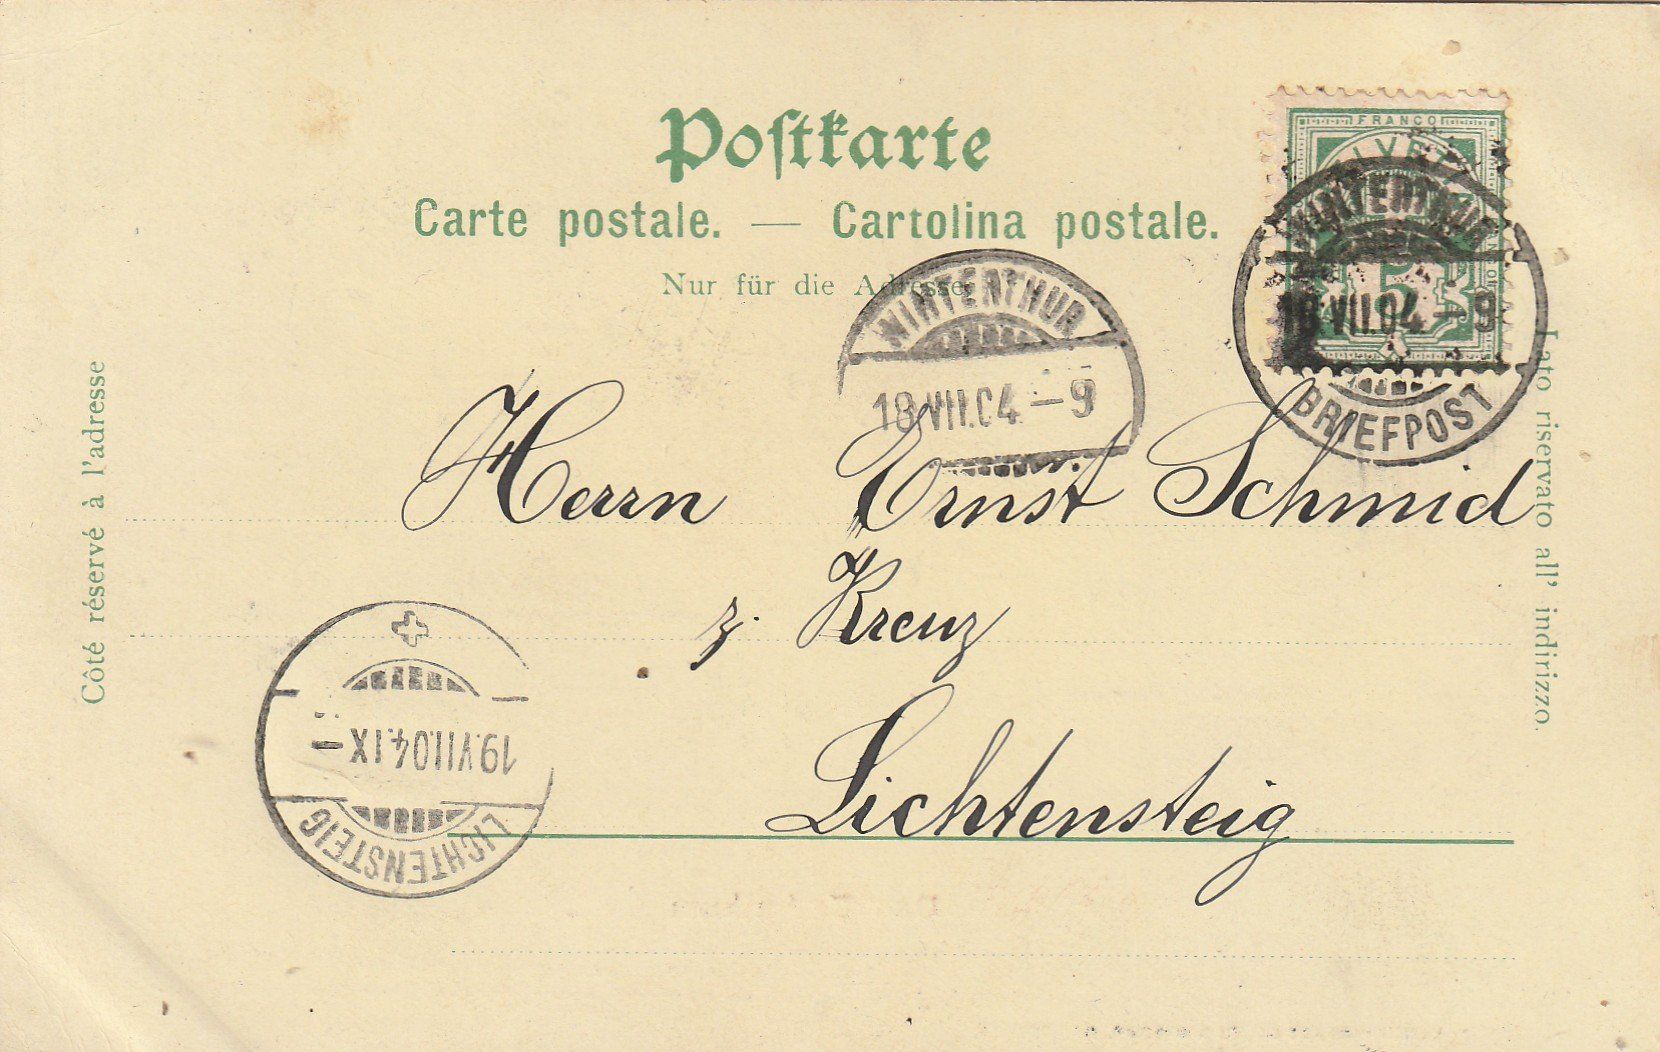 Postkarte
Carte postale. — Cartolina postale.
Nur für die Adresse
FRANCO
5
WINTERTHUR
18.VII.04.–9
BRIEFPOST
WINTERTHUR
18.VII.04–9
Côté réservé à l'adresse
Lato riservato all' indirizzo.
Herrn Ernst Schmid
z. Kreuz
Lichtensteig
19.VII.04.IX–
LICHTENSTEIG